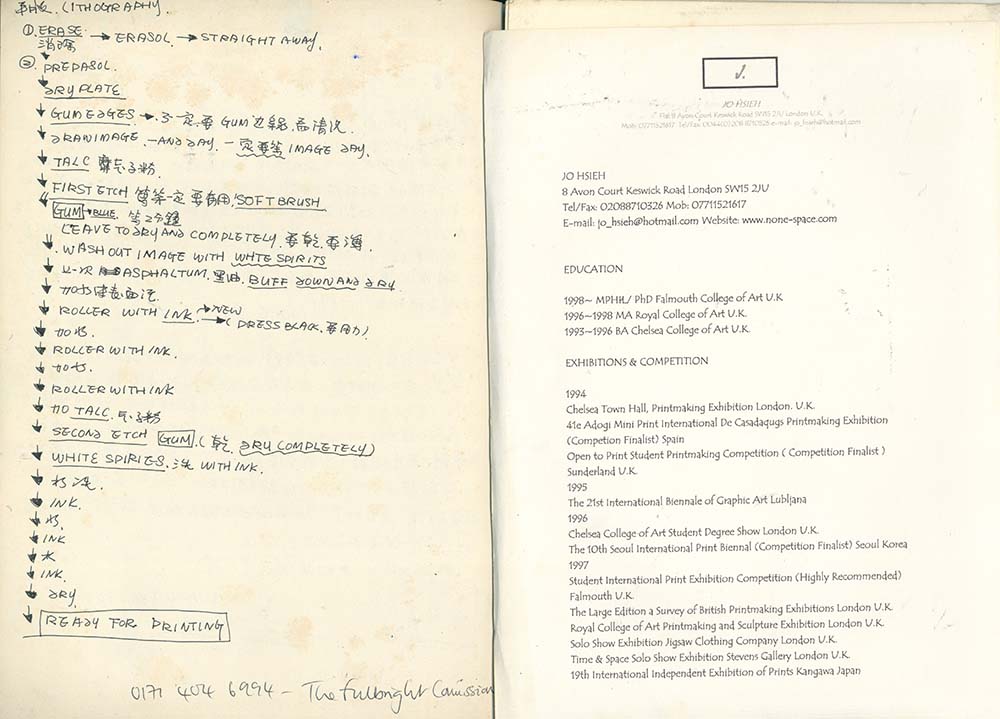 平版. LITHOGRAPHY.
① ERASE → ERASOL → STRAIGHT AWAY.
消除
② PREPASOL.
DRY PLATE
GUM EDGES → 一定要 GUM 边
DRAW IMAGE -AND DRY. 一定要等 IMAGE DRY.
TALC 粉
FIRST ETCH 一定要 SOFT BRUSH
GUM → BLUE. 等2分鐘
LEAVE TO DRY AND COMPLETELY. 要乾. 要薄.
WASH OUT IMAGE WITH WHTE SPIRITS
上一次 ASPHALTUM. 黑油. BUFF DOWN AND DRY
加水
ROLLER WITH INK → NEW
→ ( DRESS BLACK. 要用力)
加水.
ROLLER WITH INK.
加水.
ROLLER WITH INK
加 TALC.
SECOND ETCH GUM. (乾. DRY COMPLETELY)
WHITE SPIRIES. 洗 WITH INK.
水洗.
INK.
水.
INK
水
INK.
DRY.
READY FOR PRINTING
0171 404 6994 - The Fulbright Comission
J.
JO HSIEH
Flat 8 Avon Court Keswick Road SW15 2JU London U.K.
Mob: 07711521617 Tel/Fax: 0044(0)208 8710326 e-mail: jo_hsieh@hotmail.com
JO HSIEH
8 Avon Court Keswick Road London SW15 2JU
Tel/Fax: 02088710326 Mob: 07711521617
E-mail: jo_hsieh@hotmail.com Website: www.none-space.com
EDUCATION
1998~ MPHIL/ PhD Falmouth College of Art U.K
1996~1998 MA Royal College of Art U.K.
1993~1996 BA Chelsea College of Art U.K.
EXHIBITIONS & COMPETITION
1994
Chelsea Town Hall, Printmaking Exhibition London. U.K.
41e Adogi Mini Print International De Casadaqugs Printmaking Exhibition
(Competion Finalist) Spain
Open to Print Student Printmaking Competition ( Competition Finalist )
Sunderland U.K.
1995
The 21st International Biennale of Graphic Art Lubljana
1996
Chelsea College of Art Student Degree Show London U.K.
The 10th Seoul International Print Biennal (Competition Finalist) Seoul Korea
1997
Student International Print Exhibition Competition (Highly Recommended)
Falmouth U.K.
The Large Edition a Survey of British Printmaking Exhibitions London U.K.
Royal College of Art Printmaking and Sculpture Exhibition London U.K.
Solo Show Exhibition Jigsaw Clothing Company London U.K.
Time & Space Solo Show Exhibition Stevens Gallery London U.K.
19th International Independent Exhibition of Prints Kangawa Japan